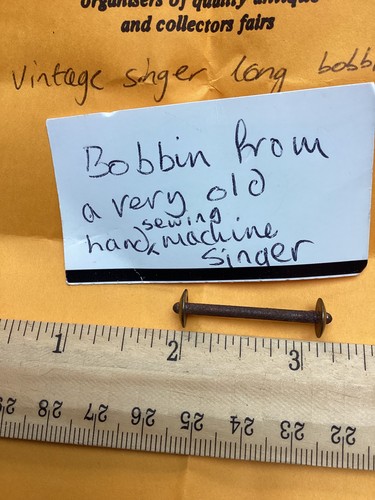 organisers of quality antique
and collectors fairs
Vintage singer long bobbi
Bobbin from
a very old
sewing
hand machine
singer
1 2 3
29 28 27 26 25 24 23 22